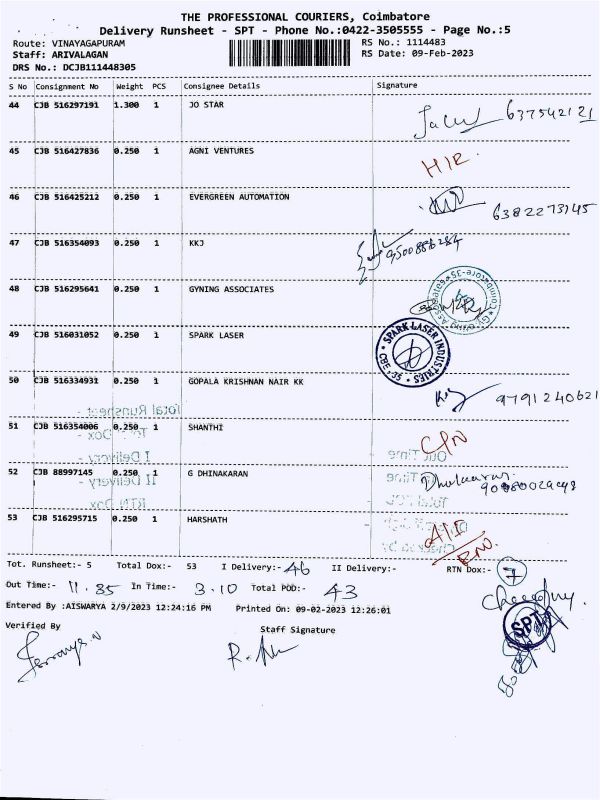 THE PROFESSIONAL COURIERS, Coimbatore
Delivery Runsheet - SPT - Phone No.:0422-3505555 - Page No.:5
Route: VINAYAGAPURAM RS No.: 1114483
Staff: ARIVALAGAN RS Date: 09-Feb-2023
DRS No.: DCJB111448305
S No Consignment No Weight PCS Consignee Details Signature
44 CJB 516297191 1.300 1 JO STAR 637542121
45 CJB 516427836 0.250 1 AGNI VENTURES
46 CJB 516425212 0.250 1 EVERGREEN AUTOMATION 6382273145
47 CJB 516354093 0.250 1 KKJ 9500886284
48 CJB 516295641 0.250 1 GYNING ASSOCIATES
49 CJB 516031052 0.250 1 SPARK LASER SPARK LASER INDUSTRIES CBE-35
50 CJB 516334931 0.250 1 GOPALA KRISHNAN NAIR KK 9791240621
51 CJB 516354006 0.250 1 SHANTHI
52 CJB 88997145 0.250 1 G DHINAKARAN
53 CJB 516295715 0.250 1 HARSHATH
Tot. Runsheet:- 5 Total Dox:- 53 I Delivery:- 46 II Delivery:- RTN Dox:- 7
Out Time:- 11.85 In Time:- 3.10 Total POD:- 43
Entered By :AISWARYA 2/9/2023 12:24:16 PM Printed On: 09-02-2023 12:26:01
Verified By Staff Signature SPT